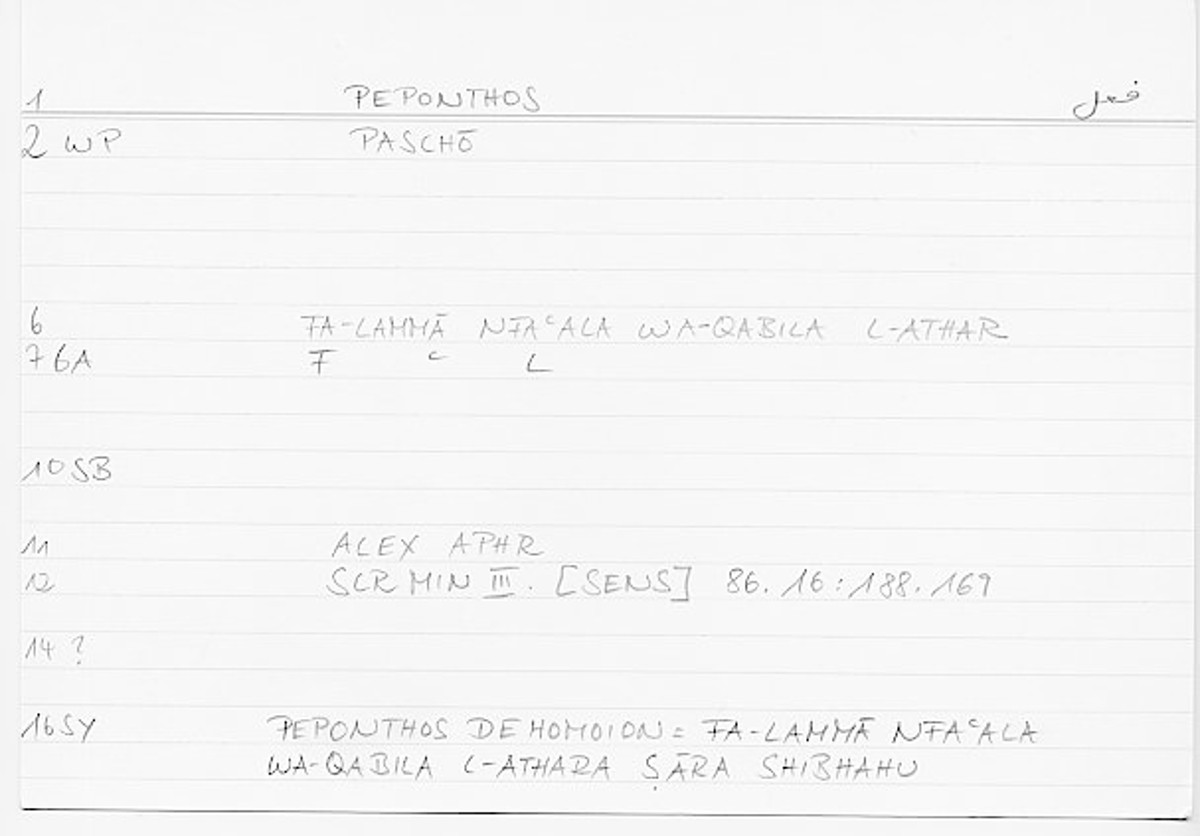 1 PEPONTHOS فعل
2 WP PASCHŌ
6 FA-LAMMĀ NFAʿALA WA-QABILA L-ATHAR
7 6A F ʿ L
10 SB
11 ALEX APHR
12 SCR MIN III. [SENS] 86.16:188.169
14 ?
16 SY PEPONTHOS DE HOMOION = FA-LAMMĀ NFAʿALA
WA-QABILA L-ATHARA ṢĀRA SHIBHAHU